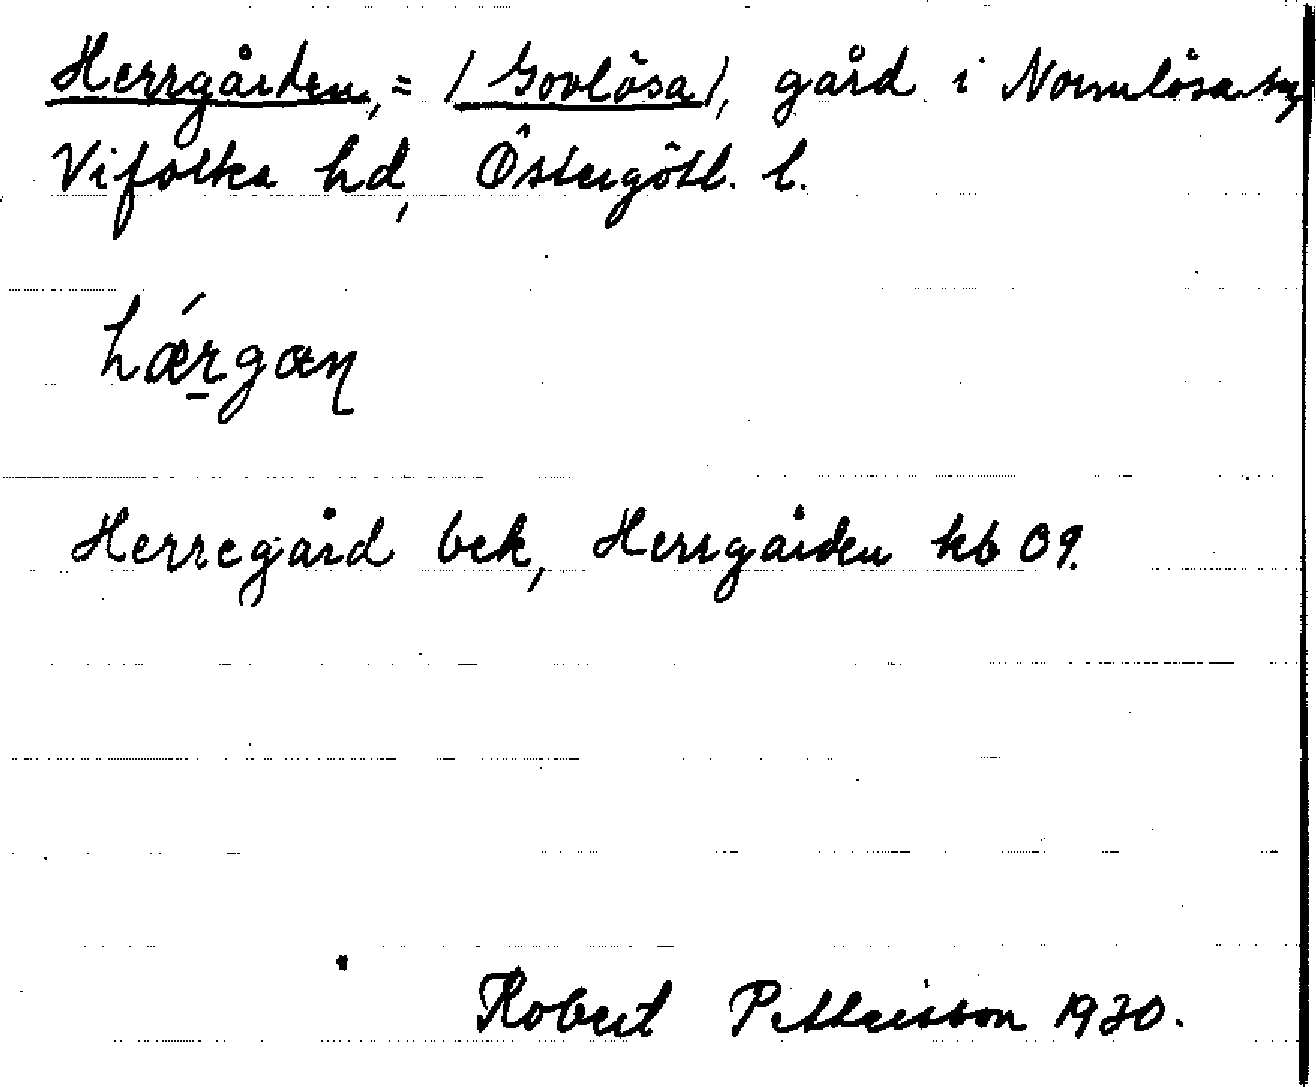 Herrgården, = / Govlösa /, gård i Normlösa sn,
Vifolka hd, Östergötl. l.
hǽrgan
Herregård bek, Herrgården kb 09.
Robert Pettersson 1930.